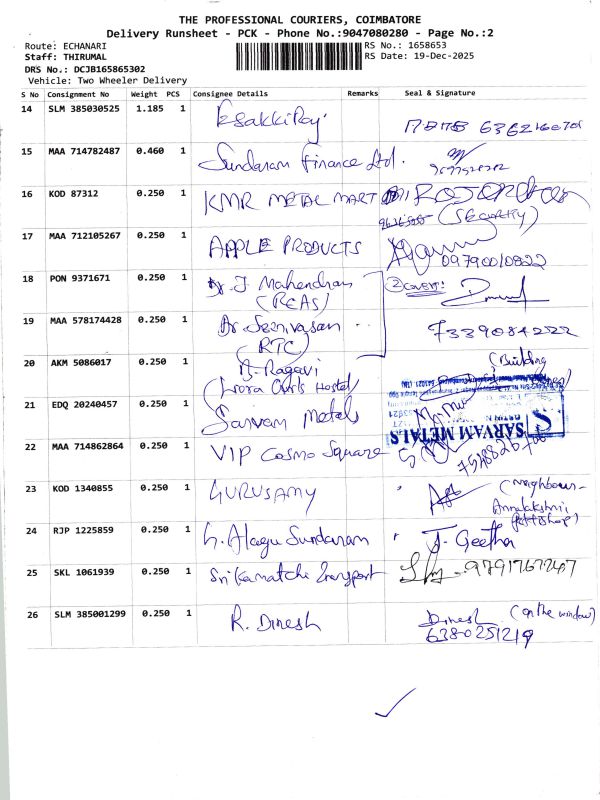 THE PROFESSIONAL COURIERS, COIMBATORE
Delivery Runsheet - PCK - Phone No.:9047080280 - Page No.:2
Route: ECHANARI
RS No.: 1658653
Staff: THIRUMAL
RS Date: 19-Dec-2025
DRS No.: DCJB165865302
Vehicle: Two Wheeler Delivery
S No Consignment No Weight PCS Consignee Details Remarks Seal & Signature
14 SLM 385030525 1.185 1 EsakkiRaj
15 MAA 714782487 0.460 1 Sundaram Finance Ltd.
16 KOD 87312 0.250 1 KMR METAL MART
(SECURITY)
17 MAA 712105267 0.250 1 APPLE PRODUCTS
09790010822
18 PON 9371671 0.250 1 Dr. J Mahendran
(REAS)
2 COVER!
19 MAA 578174428 0.250 1 Dr. Seenivasan
(RTC)
7339084222
20 AKM 5086017 0.250 1 Ragavi
Girls Hostel)
(Building
21 EDQ 20240457 0.250 1 Sarvam Metals
SARVAM METALS
22 MAA 714862864 0.250 1 VIP Cosmo Square
23 KOD 1340855 0.250 1 GURUSAMY
(Neighbour-
Annalakshmi
24 RJP 1225859 0.250 1 G. Alagu Sundaram J. Geetha
25 SKL 1061939 0.250 1 Sri Kamatchi Transport
26 SLM 385001299 0.250 1 R. Dinesh Dinesh (on the window)
6380251219